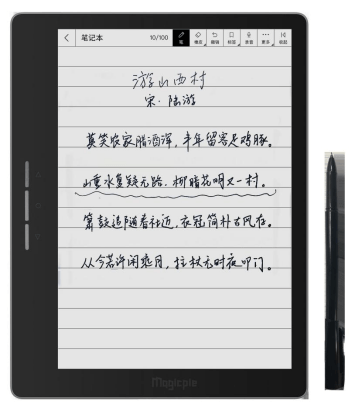 笔记本 10/100 笔 橡皮 撤销 标签 录音 更多 收起
游山西村
宋·陆游
莫笑农家腊酒浑，丰年留客足鸡豚。
山重水复疑无路，柳暗花明又一村。
箫鼓追随春社近，衣冠简朴古风存。
从今若许闲乘月，拄杖无时夜叩门。
Magicpie